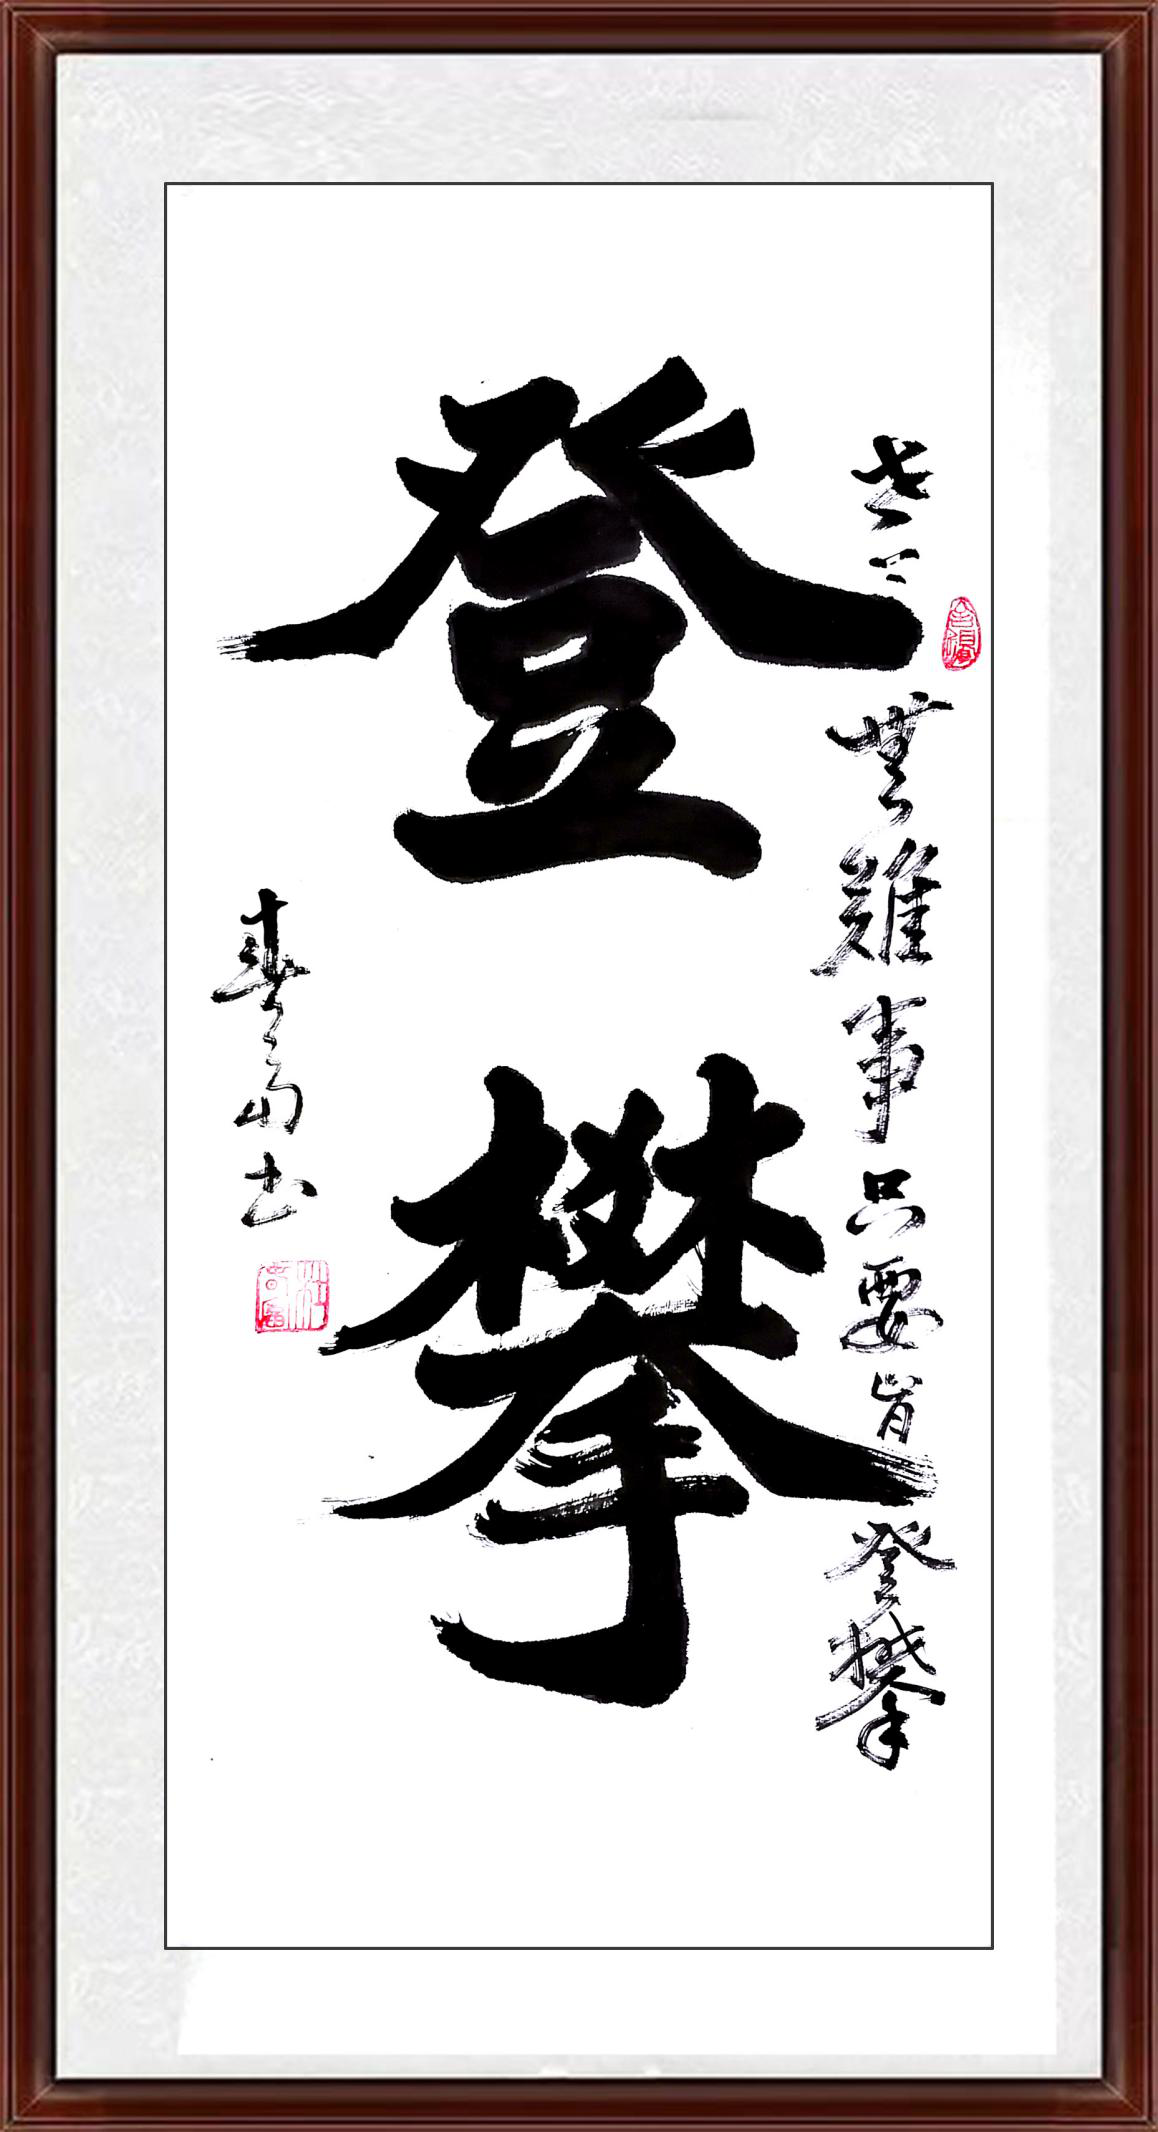 世上無難事只要肯登攀
登攀
春富书